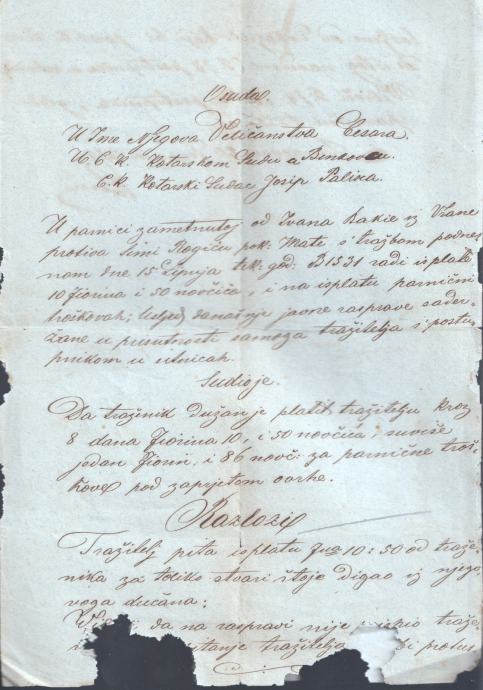 Osuda.
U Ime Njegova Veličanstva Cesara.
U C. K. Kotarskom Sudu u Benkovcu.
C. K. Kotarski Sudac Josip Palixa.
U parnici zametnutoj od Ivana Bakie iz Vrane
protiva Simi Rogiću pok: Mate s tražbom podnes
nom dne 15 Lipnja tek: god: B 1531 radi isplate
10 fiorina i 50 novčića, i na isplatu parnični
troškovah; usljed današnje javne rasprave sadер-
žane u prisutnosti samoga tražitelja i postu
pnikom u
Sudio je.
Da traženik dužan je platit tražitelju kroz
8 dana fiorina 10, i 50 novčića; suviše
jedan fiorin, i 86 novč: za parnične troš
kove pod zaprjetom ovrhe.
Razlozi
Tražitelj pita isplatu 10:50 od traže
nika za toliko stvari štoje digao iz njego
voga dućana;
da na raspravi nije traže
pitanje tražitelja